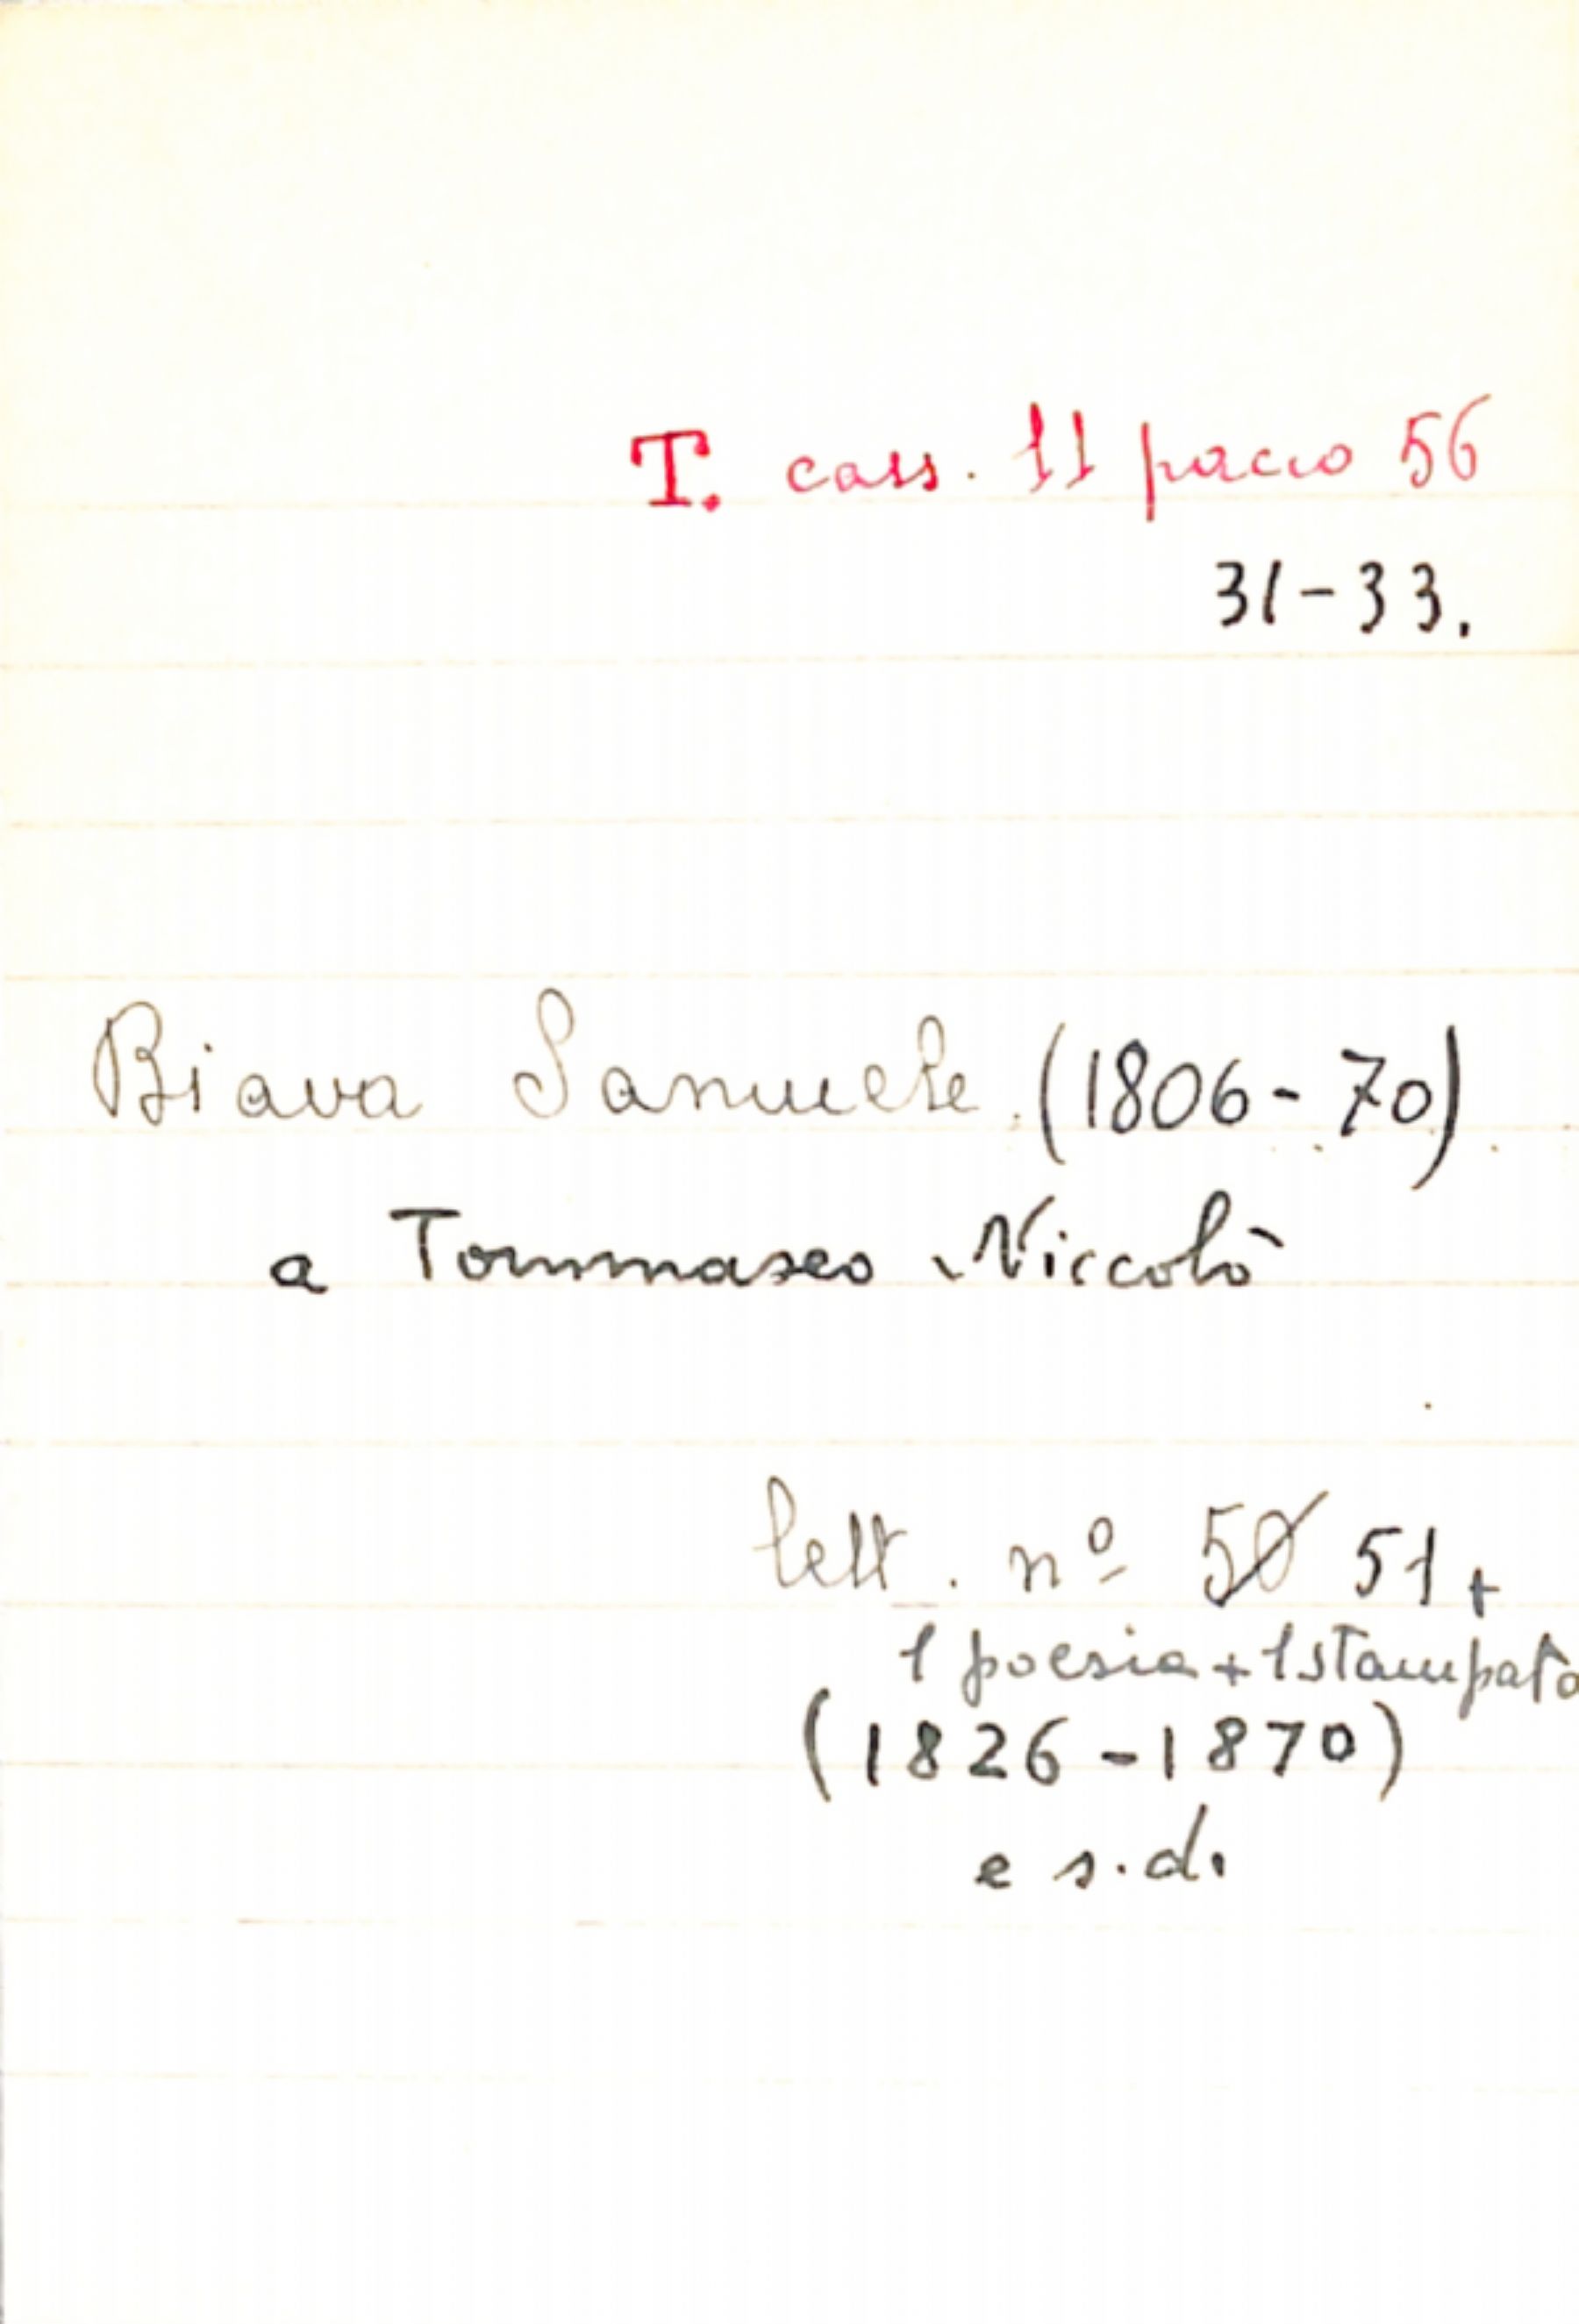 T. cass. 11 pacco 56
31-33.
Biava Samuele (1806-70)
a Tommaseo Niccolò
lett. nº 50 51 +
1 poesia + 1 stampato
(1826-1870)
e s.d.